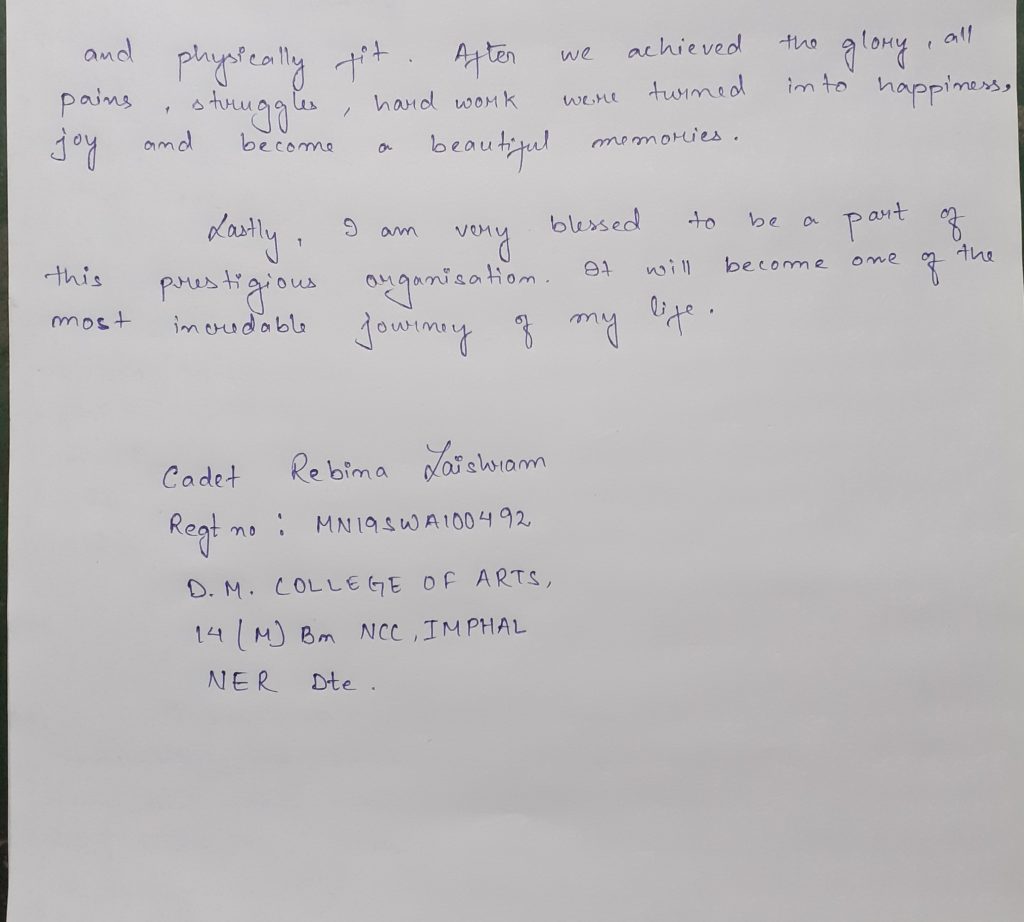 and physically fit. After we achieved the glory, all
pains, struggles, hard work were turned into happiness,
joy and become a beautiful memories.
Lastly, I am very blessed to be a part of
this prestigious organisation. It will become one of the
most incredable journey of my life.
Cadet Rebina Laishram
Regt no : MN19SWA100492
D.M. COLLEGE OF ARTS,
14 (M) Bn NCC, IMPHAL
NER Dte.